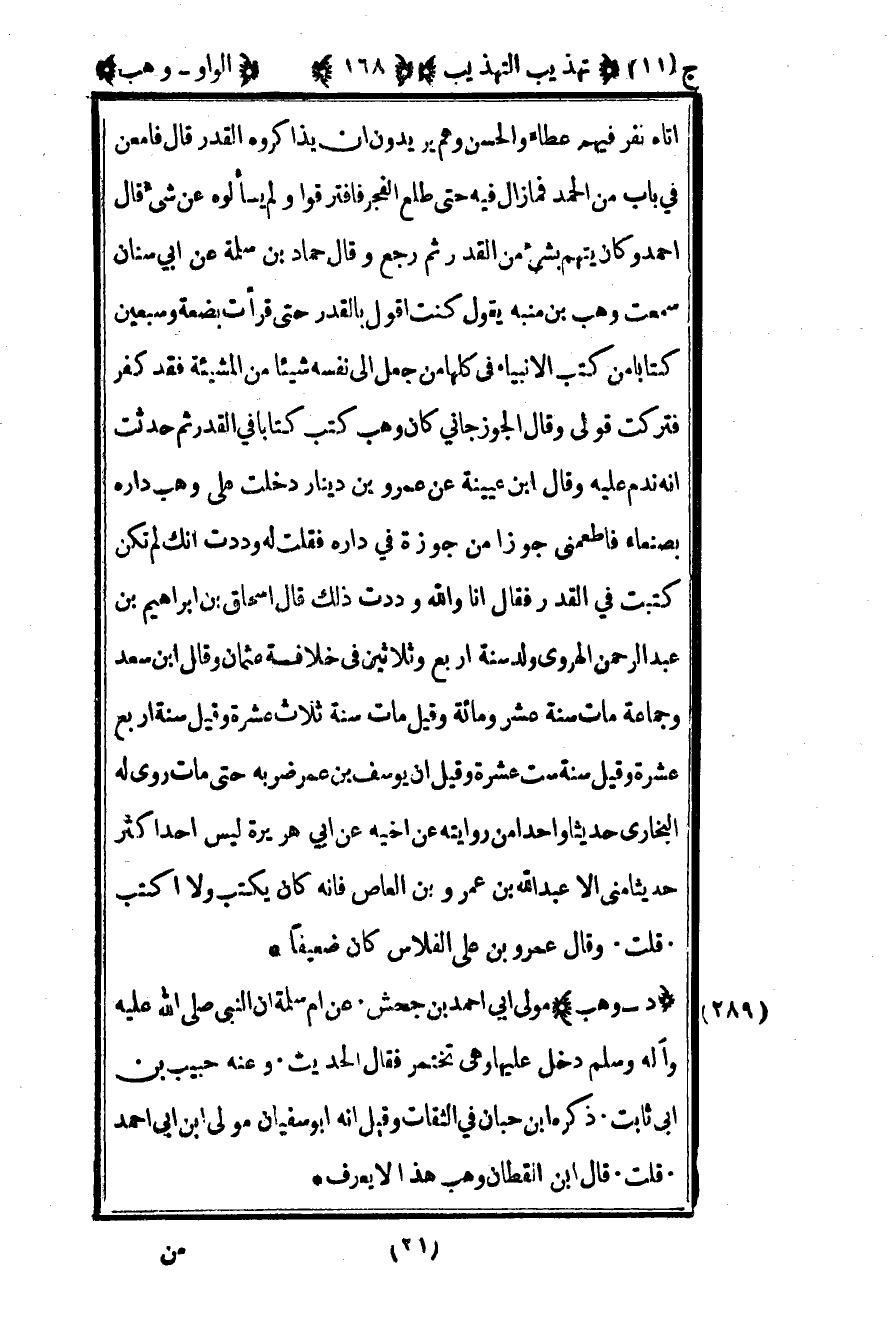 ج (١١) ﴿ تهذيب التهذيب ﴾ ﴿ ١٦٨ ﴾ ﴿ الواو - وهب ﴾
اتاه نفر فيهم عطاء والحسن وهم يريدون ان يذاكروه القدر قال فامعن
في باب من الحمد فمازال فيه حتى طلع الفجر فافترقوا ولم يسألوه عن شىء قال
احمد وكان يتهم بشىء من القدر ثم رجع وقال حماد بن سلمة عن ابي سنان
سمعت وهب بن منبه يقول كنت اقول بالقدر حتى قرأت بضعة وسبعين
كتابا من كتب الانبياء فى كلها من جعل الى نفسه شيئا من المشيئة فقد كفر
فتركت قولى وقال الجوزجاني كان وهب كتب كتابا في القدر ثم حدثت
انه ندم عليه وقال ابن عيينة عن عمرو بن دينار دخلت على وهب داره
بصنعاء فاطعمنى جوزا من جوزة في داره فقلت له وددت انك لم تكن
كتبت في القدر فقال انا والله وددت ذلك قال اسحاق بن ابراهيم بن
عبد الرحمن الهروى ولد سنة اربع وثلاثين فى خلافة عثمان وقال ابن سعد
وجماعة مات سنة عشر ومائة وقيل مات سنة ثلاث عشرة وقيل سنة اربع
عشرة وقيل سنة ست عشرة وقيل ان يوسف بن عمر ضربه حتى مات روى له
البخارى حديثا واحدا من روايته عن اخيه عن ابي هريرة ليس احدا كثر
حديثا منى الا عبدالله بن عمرو بن العاص فانه كان يكتب ولا اكتب
· قلت · وقال عمرو بن على الفلاس كان ضعيفاً *
﴿ د - وهب ﴾ مولى ابي احمد بن جحش · عن ام سلمة ان النبى صلى الله عليه (٢٨٩)
وآله وسلم دخل عليها وهى تختمر فقال الحديث · وعنه حبيب بن
ابى ثابت · ذكره ابن حبان في الثقات وقيل انه ابوسفيان مولى ابن ابى احمد
· قلت · قال ابن القطان وهب هذا لا يعرف *
(٢١) من